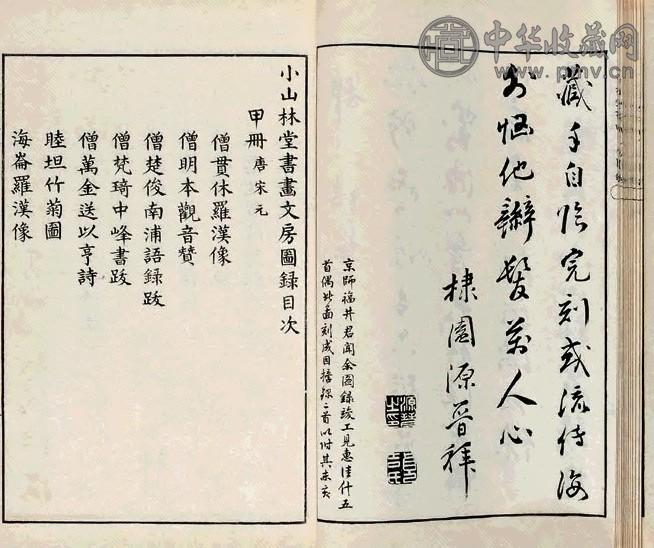 中华收藏网
www.pmv.cn
藏手自臨完刻或流傳海
外他辦髮人心
棣園源晉拜
京師福井君聞余圖録竣工見惠佳什五
首偶此圖刻成因録二首以附其末
小山林堂書畫文房圖録目次
甲冊 唐宋元
僧貫休羅漢像
僧明本觀音贊
僧楚俊南浦語録跋
僧梵琦中峰書跋
僧萬金送以亨詩
睦坦竹菊圖
海崙羅漢像